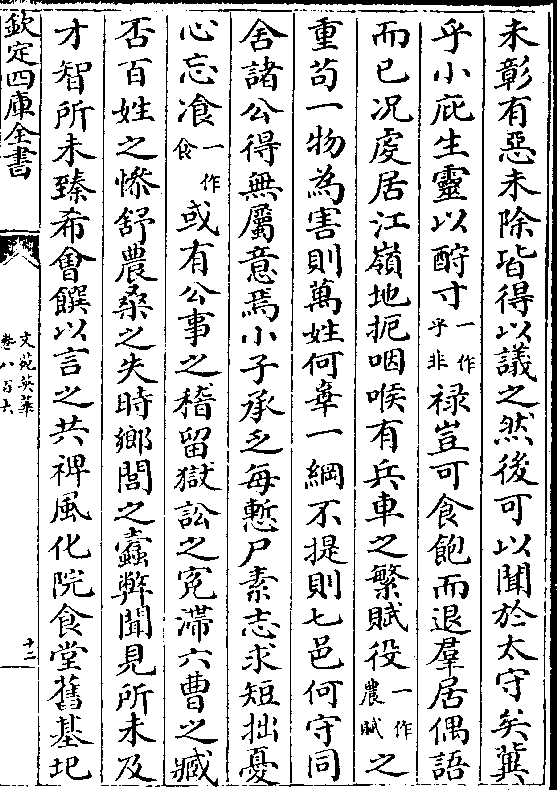 未彰有惡未除皆得以議之然後可以聞於太守矣冀
乎小庇生靈以酧寸一作乎非禄豈可食飽而退羣居偶語
而已况處居江嶺地扼咽喉有兵車之繁賦役一作農賦之
重苟一物為害則萬姓何辜一綱不提則七邑何守同
舍諸公得無屬意焉小子承乏每慙尸素志求短拙憂
心忘飡一作食或有公事之稽留獄訟之寃滯六曹之臧
否百姓之慘舒農桑之失時鄉閭之蠹弊聞見所未及
才智所未臻希會饌以言之共裨風化院食堂舊基圯
欽定四庫全書
文苑英華
卷八百六
十二